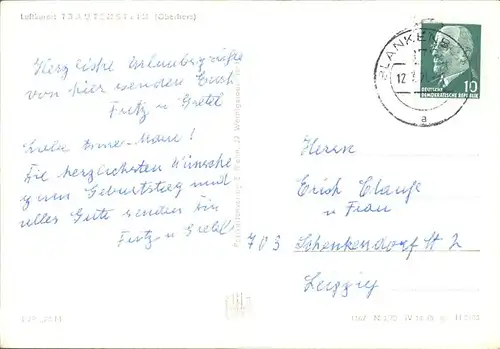 Luftkurort TRAUTENSTEIN (Oberharz)
Herzliche Urlaubsgrüße
von hier senden Euch
Fritz u Gretel
Liebe Anne-Marie!
Die herzlichsten Wünsche
zum Geburtstag und
alles Gute senden Dir
Fritz u Gretel
BLANKENB
a
10
DEUTSCHE
DEMOKRATISCHE REPUBLIK
Herrn
Erich Clauß
u Frau
703 Schenkendorf St 2
Leipzig